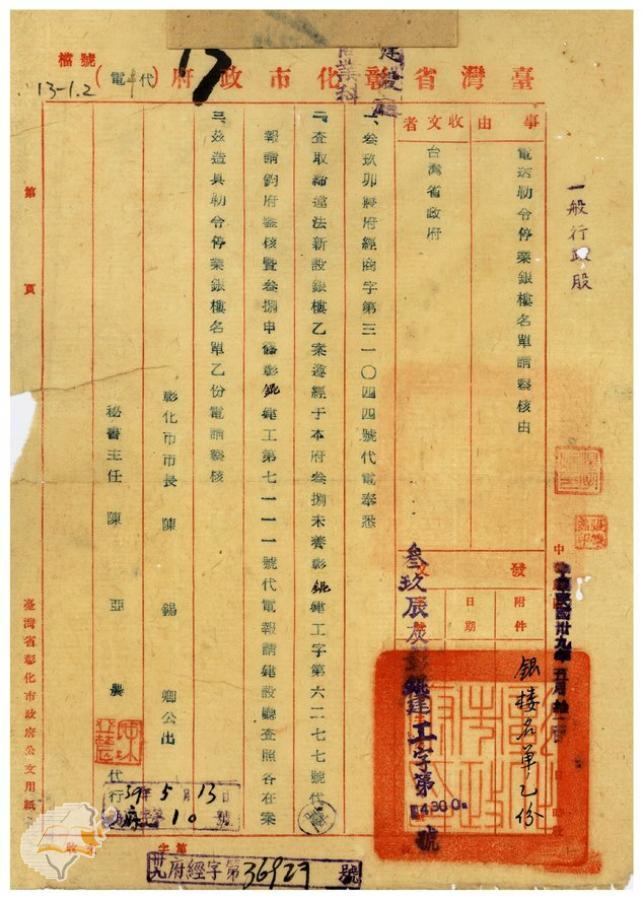 臺灣省彰化市政府(代電)
檔號
13-1.2
17
建設廳
一般行政股
事由
收文者
電送勒令停業銀樓名單請察核由
台灣省政府
發
附件
日期
銀樓名單乙份
中華民國卅九年五月
叁玖辰灰彰銑建工字第
4800
號
一、叁玖卯府經商字第三一〇四四號代電奉悉
二、查取締違法新設銀樓乙案遵經于本府叁捌未養彰銑建工字第六二七七號代電
報請鈞府鑒核暨叁捌申彰銑建工第七一一一號代電報請建設廳查照各在案
三、茲造具勒令停業銀樓名單乙份電請察核
彰化市市長 陳 錫 卿公出
秘書主任 陳 亞 農 代行
39年5月13日
10號
第 頁
臺灣省彰化市政府公文用紙
收 字第
卅九府經字第36927號